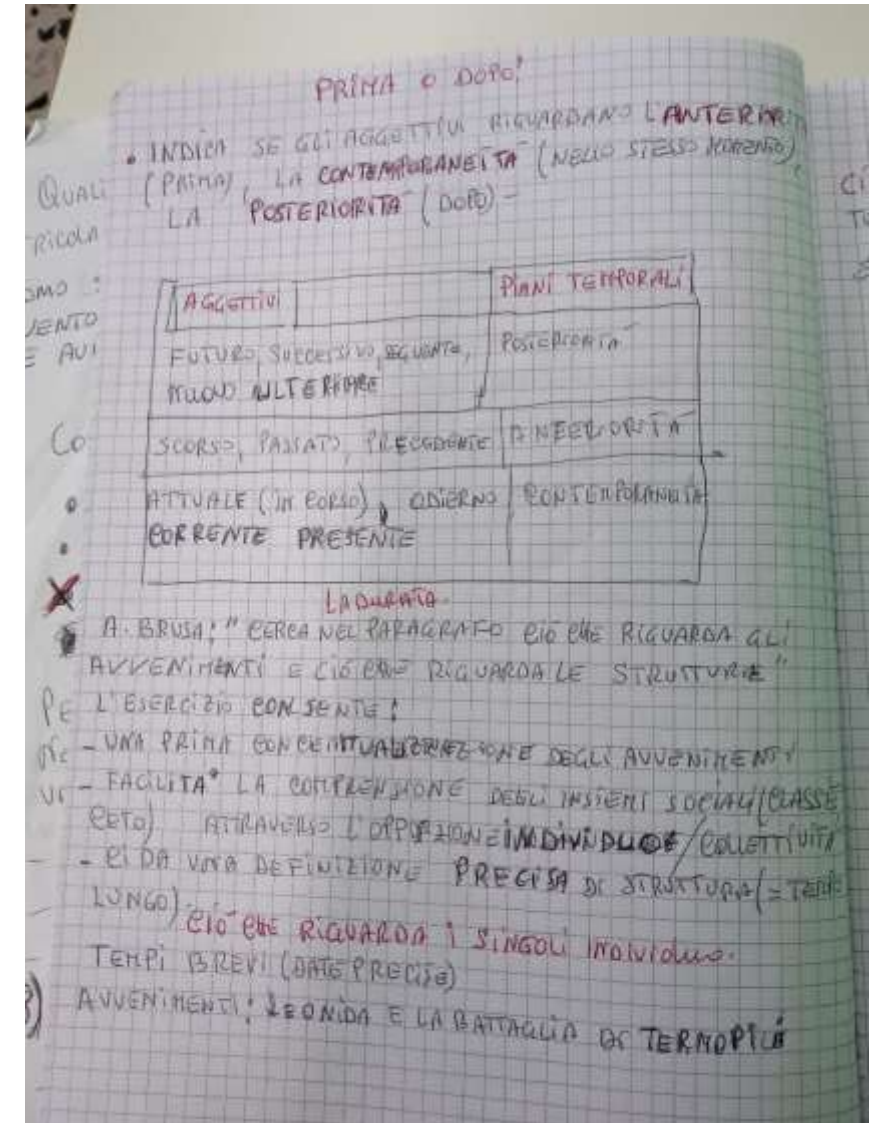 PRIMA O DOPO?
• INDICA SE GLI AGGETTIVI RIGUARDANO L'ANTERIORITÀ
(PRIMA), LA CONTEMPORANEITÀ (NELLO STESSO MOMENTO),
LA POSTERIORITÀ (DOPO) -
AGGETTIVI PIANI TEMPORALI
FUTURO, SUCCESSIVO, SEGUENTE, POSTERIORITÀ
NUOVO ULTERIORE
SCORSO, PASSATO, PRECEDENTE ANTERIORITÀ
ATTUALE (IN CORSO), ODIERNO CONTEMPORANEITÀ
CORRENTE PRESENTE
LA DURATA.
A. BRUSA: "CERCA NEL PARAGRAFO CIÒ CHE RIGUARDA GLI
AVVENIMENTI E CIÒ CHE RIGUARDA LE STRUTTURE"
L'ESERCIZIO CONSENTE:
- UNA PRIMA CONCETTUALIZZAZIONE DEGLI AVVENIMENTI
- FACILITA LA COMPRENSIONE DEGLI INSIEMI SOCIALI (CLASSE
CETO) ATTRAVERSO L'OPPOSIZIONE INDIVIDUO/COLLETTIVITÀ
- CI DA UNA DEFINIZIONE PRECISA DI STRUTTURA (= TEMPO
LUNGO)
CIÒ CHE RIGUARDA I SINGOLI INDIVIDUO.
TEMPI BREVI (DATE PRECISE)
AVVENIMENTI: LEONIDA E LA BATTAGLIA DI TERMOPILI
QUALI
CO